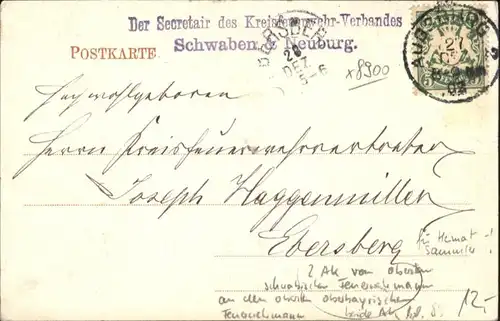 Der Secretair des Kreisfeuerwehr-Verbandes
Schwaben & Neuburg.
POSTKARTE
EBERSBERG
DEZ
5-6
AUGSBURG
x8900
Hochwohlgeboren
Herrn Kreisfeuerwehrvertreter
Joseph Haggenmiller
Ebersberg
für Heimat-
sammler!
2 Ak von obersten
schwäbischen Feuerwehrmann
an den obersten oberbayrischen
Feuerwehrmann
beide Ak
12,-